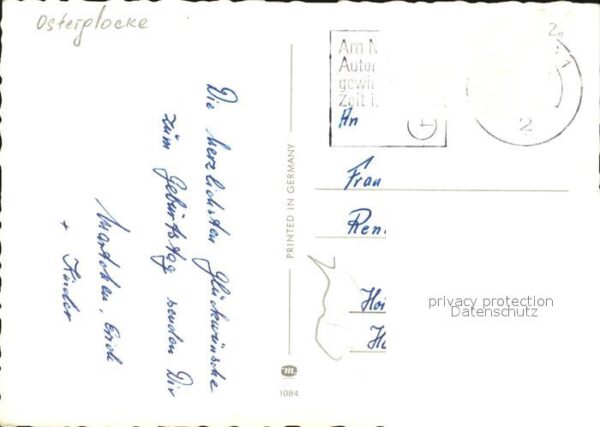 Osterglocke
Die herzlichsten Glückwünsche
zum Geburtstag senden Dir
Erich
+ Kinder
PRINTED IN GERMANY
m
1084
Am
Autor
gewin
Zeit i
2.
2
An
Frau
Ren.
Hoi
privacy protection
Datenschutz